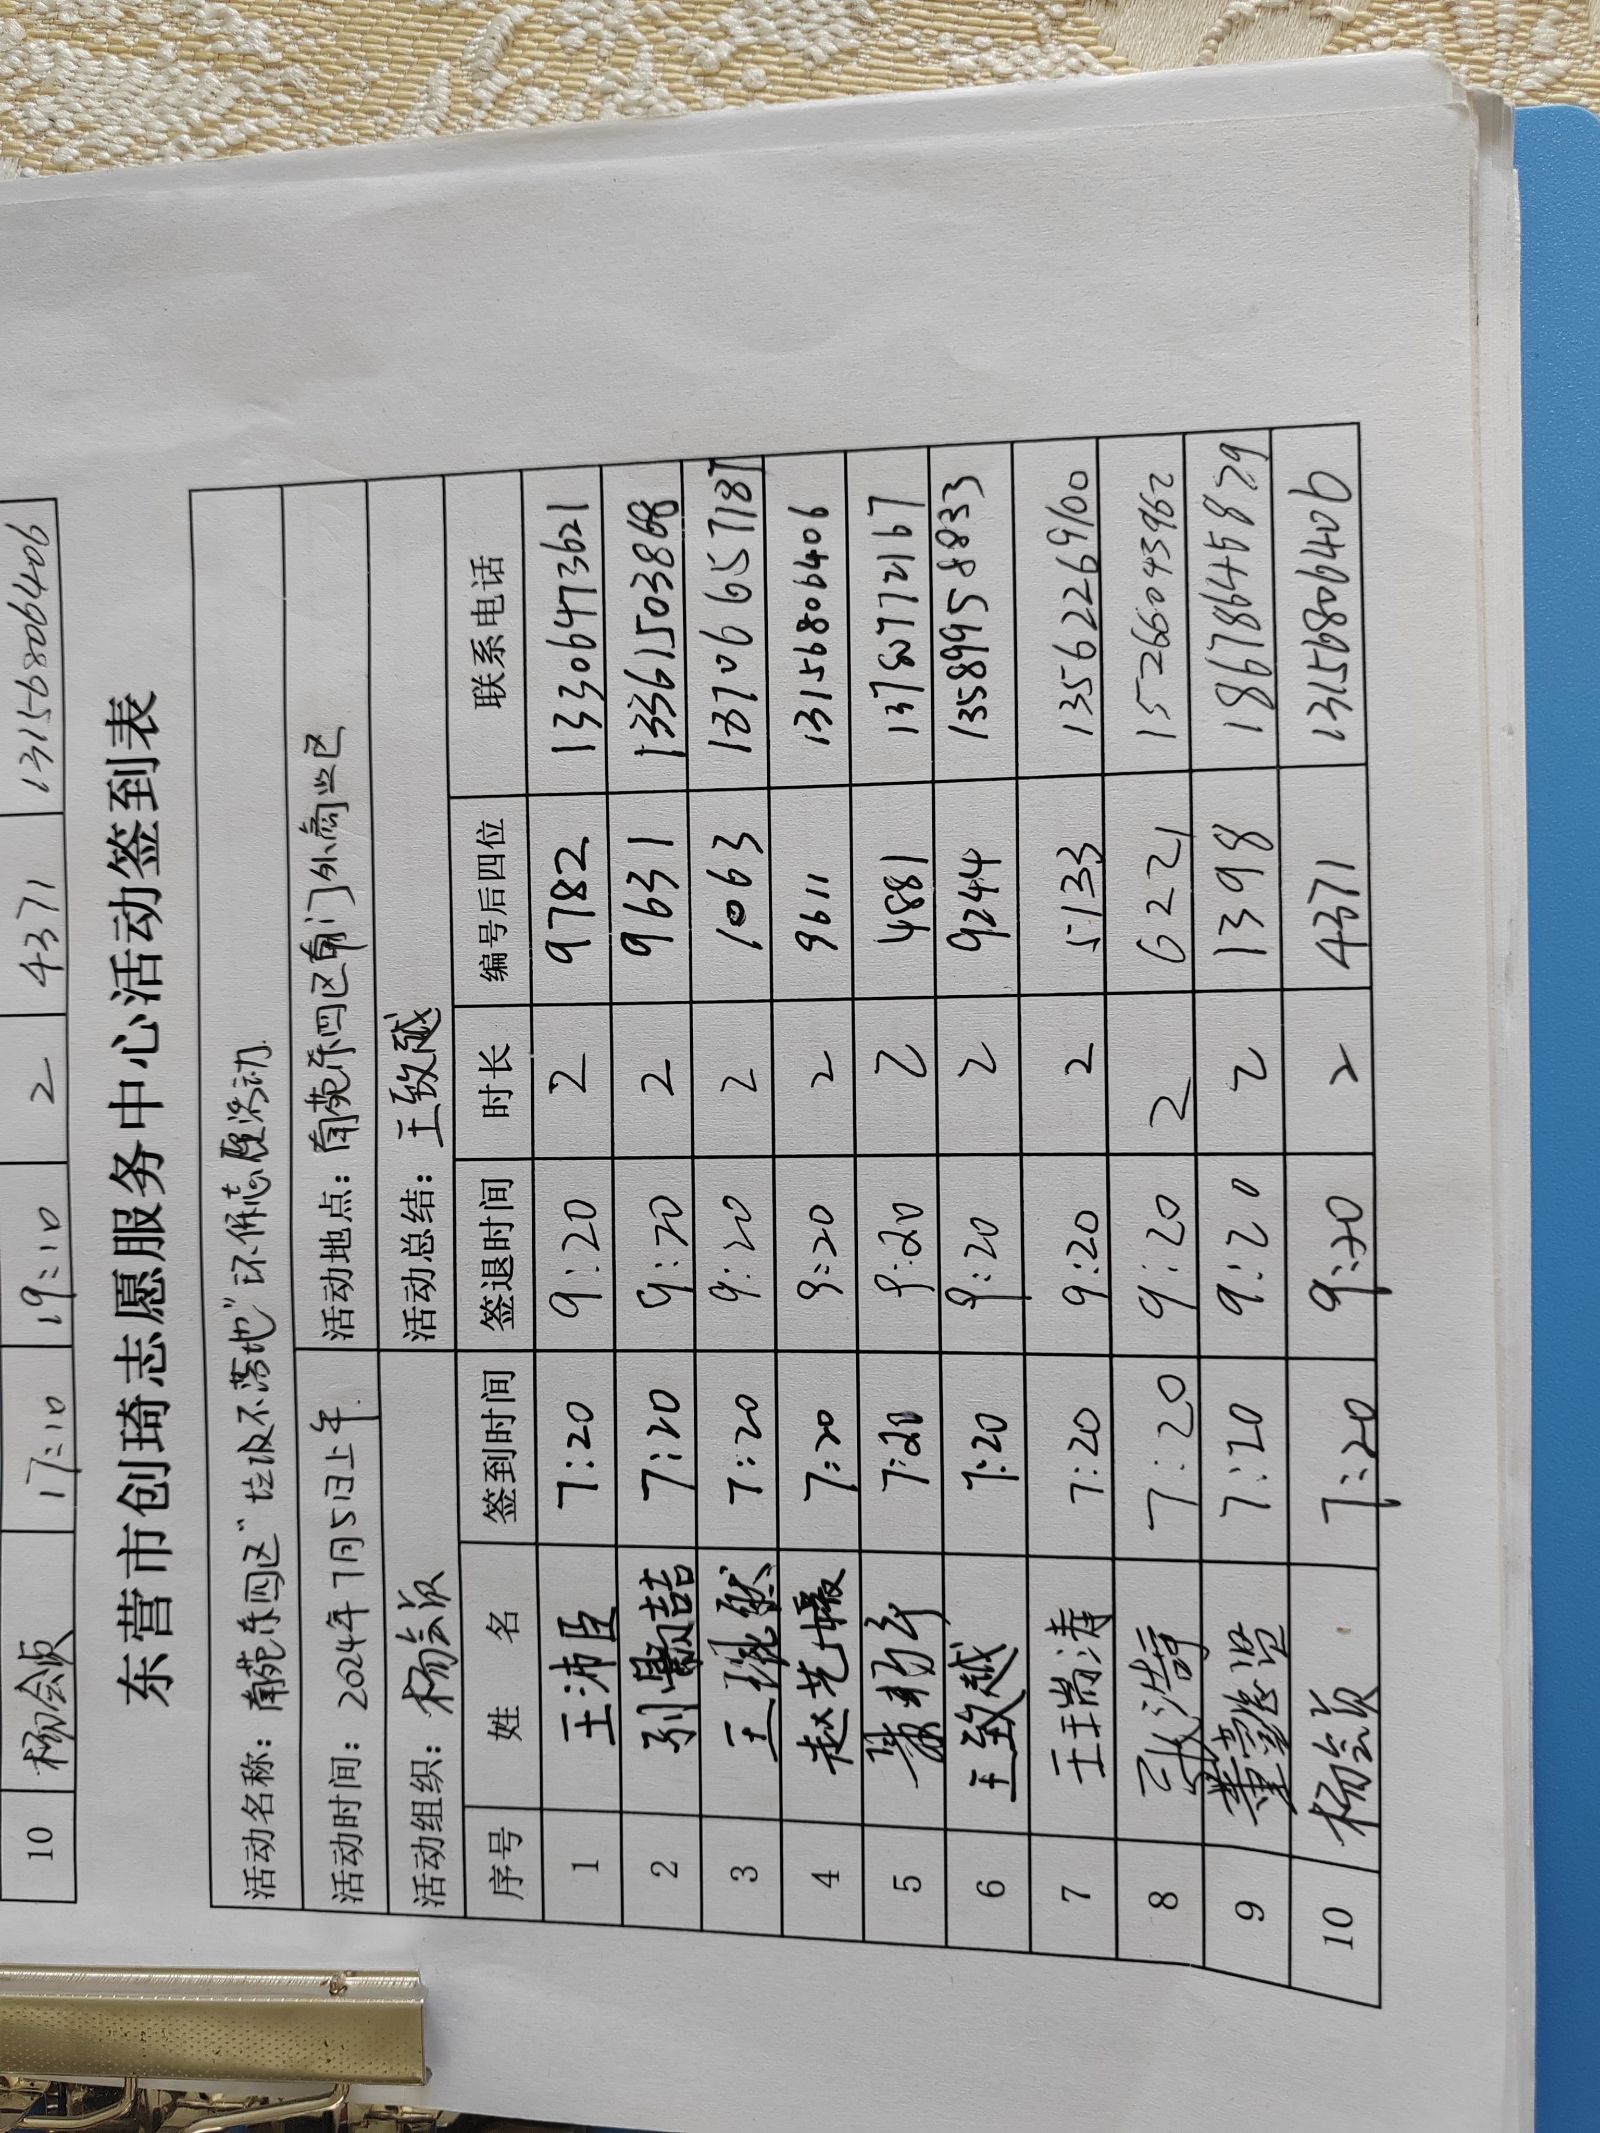 10 杨会贞 17:10 19:10 2 4371 13156806406
东营市创琦志愿服务中心活动签到表
活动名称：南苑东四区“垃圾不落地”环保志愿活动
活动时间：2024年7月5日上午 活动地点：南苑东四区南门外商业区
活动组织：杨会贞 活动总结：王致越
序号 姓 名 签到时间 签退时间 时长 编号后四位 联系电话
1 王沛臣 7:20 9:20 2 9782 13306473621
2 7:20 9:20 2 9631 13361503868
3 7:20 9:20 2 1063
4 赵艺媛 7:20 9:20 2 9611 13156806406
5 7:20 9:20 2 4881
6 王致越 7:20 9:20 2 9244 13589958833
7 王瑞涛 7:20 9:20 2 5133 13562269100
8 张浩 7:20 9:20 2 6221 15266043962
9 董 7:20 9:20 2 1398 18678645829
10 杨会贞 7:20 9:20 2 4371 13156806406